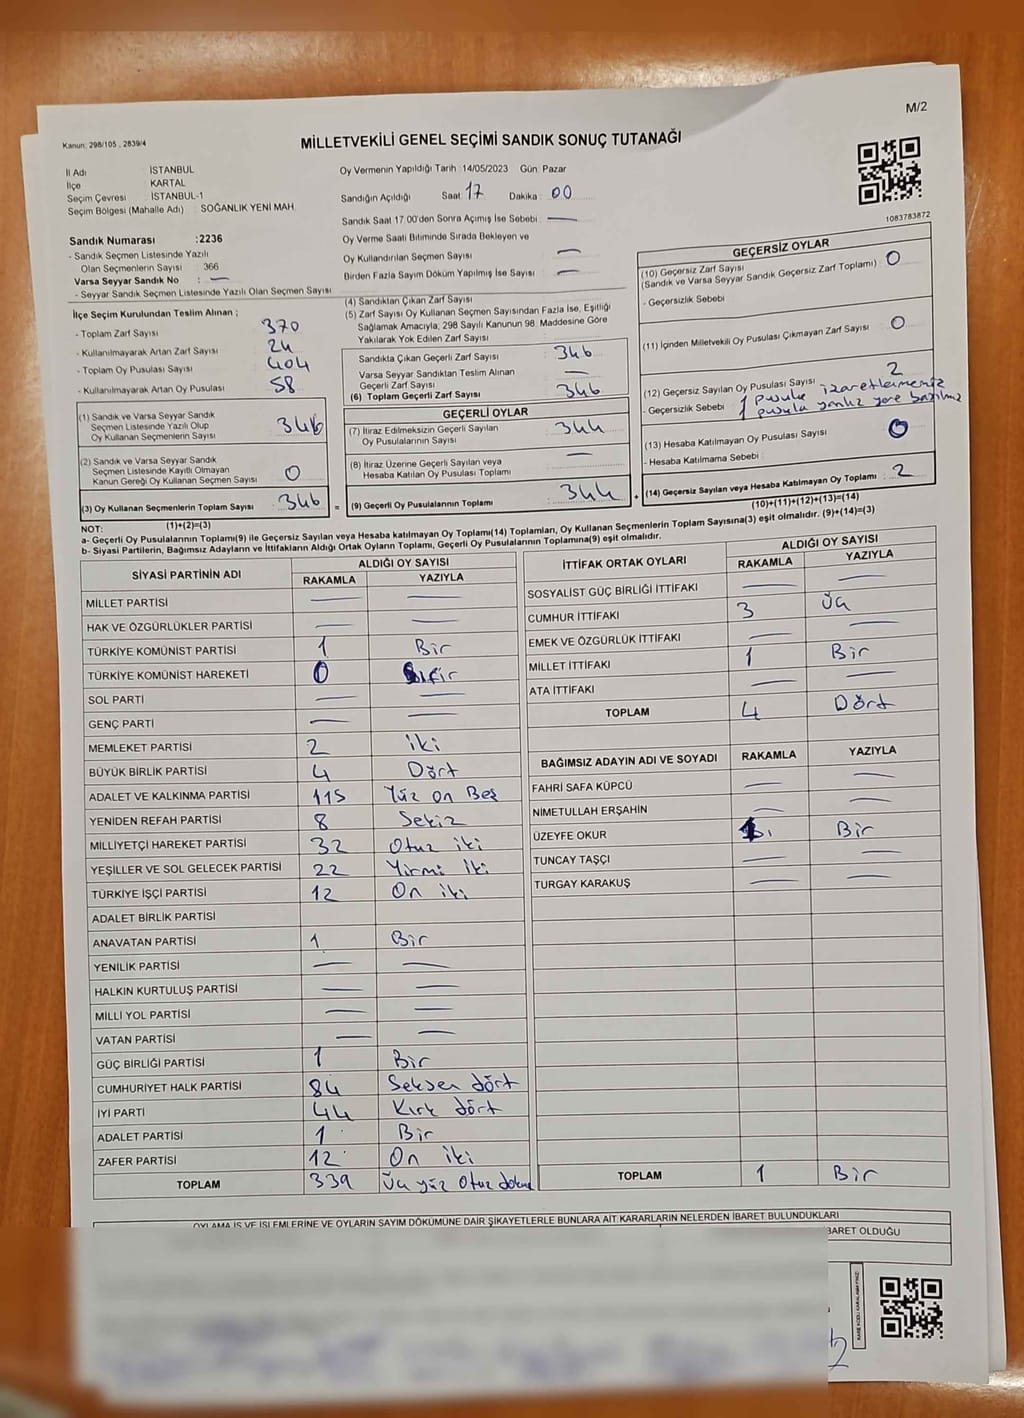 M/2
Kanun: 298/105 , 2839/4
MİLLETVEKİLİ GENEL SEÇİMİ SANDIK SONUÇ TUTANAĞI
İl Adı İSTANBUL
İlçe KARTAL
Seçim Çevresi İSTANBUL-1
Seçim Bölgesi (Mahalle Adı) : SOĞANLIK YENİ MAH.
Sandık Numarası :2236
- Sandık Seçmen Listesinde Yazılı
Olan Seçmenlerin Sayısı : 366
Varsa Seyyar Sandık No : —
- Seyyar Sandık Seçmen Listesinde Yazılı Olan Seçmen Sayısı
Oy Vermenin Yapıldığı Tarih :14/05/2023 Gün: Pazar
Sandığın Açıldığı Saat: 17 Dakika : 00
Sandık Saat 17:00'den Sonra Açımış İse Sebebi : —
Oy Verme Saati Bitiminde Sırada Bekleyen ve
Oy Kullandırılan Seçmen Sayısı —
Birden Fazla Sayım Döküm Yapılmış İse Sayısı —
1083783872
İlçe Seçim Kurulundan Teslim Alınan ;
- Toplam Zarf Sayısı 370
- Kullanılmayarak Artan Zarf Sayısı 24
- Toplam Oy Pusulası Sayısı 404
- Kullanılmayarak Artan Oy Pusulası 58
(1) Sandık ve Varsa Seyyar Sandık
Seçmen Listesinde Yazılı Olup
Oy Kullanan Seçmenlerin Sayısı 346
(2) Sandık ve Varsa Seyyar Sandık
Seçmen Listesinde Kayıtlı Olmayan
Kanun Gereği Oy Kullanan Seçmen Sayısı 0
(3) Oy Kullanan Seçmenlerin Toplam Sayısı 346 =
(1)+(2)=(3)
(4) Sandıktan Çıkan Zarf Sayısı
(5) Zarf Sayısı Oy Kullanan Seçmen Sayısından Fazla İse, Eşitliği
Sağlamak Amacıyla, 298 Sayılı Kanunun 98. Maddesine Göre
Yakılarak Yok Edilen Zarf Sayısı
Sandıkta Çıkan Geçerli Zarf Sayısı 346
Varsa Seyyar Sandıktan Teslim Alınan
Geçerli Zarf Sayısı —
(6) Toplam Geçerli Zarf Sayısı 346
GEÇERLİ OYLAR
(7) İtiraz Edilmeksizin Geçerli Sayılan
Oy Pusulalarının Sayısı 344
(8) İtiraz Üzerine Geçerli Sayılan veya
Hesaba Katılan Oy Pusulası Toplamı —
(9) Geçerli Oy Pusulalarının Toplamı 344 +
GEÇERSİZ OYLAR
(10) Geçersiz Zarf Sayısı
(Sandık ve Varsa Seyyar Sandık Geçersiz Zarf Toplamı) 0
- Geçersizlik Sebebi
(11) İçinden Milletvekili Oy Pusulası Çıkmayan Zarf Sayısı 0
(12) Geçersiz Sayılan Oy Pusulası Sayısı 2
- Geçersizlik Sebebi 1 pusula
1 pusula yanlız yere
(13) Hesaba Katılmayan Oy Pusulası Sayısı 0
- Hesaba Katılmama Sebebi
(14) Geçersiz Sayılan veya Hesaba Katılmayan Oy Toplamı 2
(10)+(11)+(12)+(13)=(14)
NOT:
a- Geçerli Oy Pusulalarının Toplamı(9) ile Geçersiz Sayılan veya Hesaba katılmayan Oy Toplamı(14) Toplamları, Oy Kullanan Seçmenlerin Toplam Sayısına(3) eşit olmalıdır. (9)+(14)=(3)
b- Siyasi Partilerin, Bağımsız Adayların ve İttifakların Aldığı Ortak Oyların Toplamı, Geçerli Oy Pusulalarının Toplamına(9) eşit olmalıdır.
SİYASİ PARTİNİN ADI ALDIĞI OY SAYISI
RAKAMLA YAZIYLA
MİLLET PARTİSİ — —
HAK VE ÖZGÜRLÜKLER PARTİSİ — —
TÜRKİYE KOMÜNİST PARTİSİ 1 Bir
TÜRKİYE KOMÜNİST HAREKETİ 0 Sıfır
SOL PARTİ — —
GENÇ PARTİ — —
MEMLEKET PARTİSİ 2 iki
BÜYÜK BİRLİK PARTİSİ 4 Dört
ADALET VE KALKINMA PARTİSİ 115 Yüz On Beş
YENİDEN REFAH PARTİSİ 8 Sekiz
MİLLİYETÇİ HAREKET PARTİSİ 32 Otuz iki
YEŞİLLER VE SOL GELECEK PARTİSİ 22 Yirmi iki
TÜRKİYE İŞÇİ PARTİSİ 12 On iki
ADALET BİRLİK PARTİSİ
ANAVATAN PARTİSİ 1 Bir
YENİLİK PARTİSİ — —
HALKIN KURTULUŞ PARTİSİ — —
MİLLİ YOL PARTİSİ — —
VATAN PARTİSİ — —
GÜÇ BİRLİĞİ PARTİSİ 1 Bir
CUMHURİYET HALK PARTİSİ 84 Seksen dört
İYİ PARTİ 44 Kırk dört
ADALET PARTİSİ 1 Bir
ZAFER PARTİSİ 12 On iki
TOPLAM 339 Üç yüz Otuz dokuz
İTTİFAK ORTAK OYLARI ALDIĞI OY SAYISI
RAKAMLA YAZIYLA
SOSYALİST GÜÇ BİRLİĞİ İTTİFAKI — —
CUMHUR İTTİFAKI 3 Üç
EMEK VE ÖZGÜRLÜK İTTİFAKI — —
MİLLET İTTİFAKI 1 Bir
ATA İTTİFAKI — —
TOPLAM 4 Dört
BAĞIMSIZ ADAYIN ADI VE SOYADI RAKAMLA YAZIYLA
FAHRİ SAFA KÜPCÜ — —
NİMETULLAH ERŞAHİN — —
ÜZEYFE OKUR 1 Bir
TUNCAY TAŞÇI — —
TURGAY KARAKUŞ — —
TOPLAM 1 Bir
OYLAMA İŞ VE İŞLEMLERİNE VE OYLARIN SAYIM DÖKÜMÜNE DAİR ŞİKAYETLERLE BUNLARA AİT KARARLARIN NELERDEN İBARET BULUNDUKLARI
BARET OLDUĞU